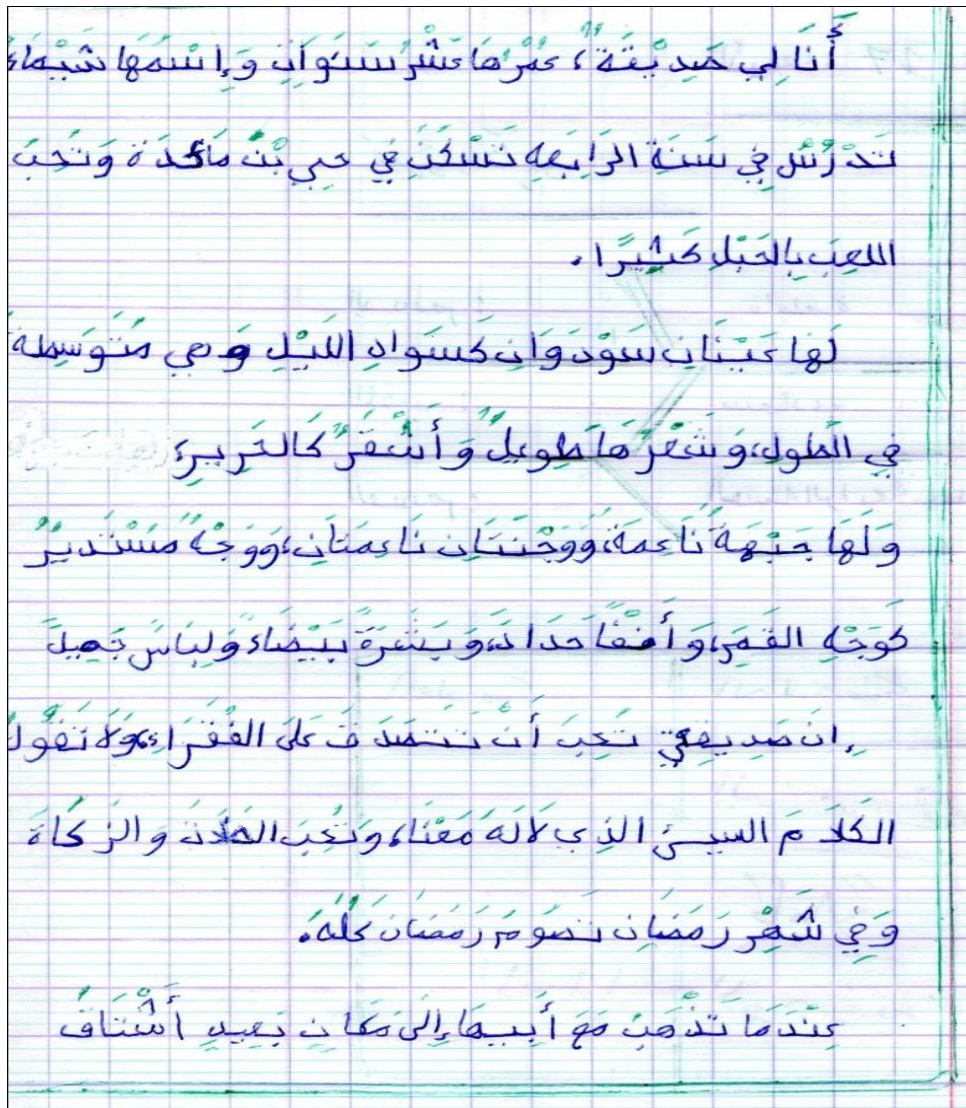 أَنَا لِي صَدِيْقَةٌ، عُمْرُهَا عَشْرُ سَنَوَاتٍ وَإِسْمُهَا شَيْمَاءُ
تَدْرُسُ فِي سَنَةِ الرَابِعَهِ تَسْكُنُ فِي حَيِ بْنُ مَاكدَة وَتُحِبُ
اللعِبَ بِالحَبْلِ كَثِيرًا.
لَهَا عَيْنَانِ سَوْدَوَانِ كَسَوَادِ اللَيْلِ وَ هي مُتَوَسِطَة
فِي الطُولِ، وَ شَعْرُهَا طَوِيلٌ وَ أَشْقَرٌ كَالحَرِيرِ،
وَ لَهَا جَبْهَةٌ نَاعِمَةٌ، وَوَجْنَتَانِ نَاعِمَتَانِ، وَوَجْهٌ مُسْتَدِيرٌ
كَوَجْهِ القَمَرِ، وَ أَنْفًا حَدَادَ، وَ بَشَرَةً بَيْضَاءَ وَلِبَاسٌ جَمِيلٌ
إِنَ صَدِيقَتِي تُحِبُ أَنْ تَتَصَدَقَ عَلَى الفُقَرَاءِ، وَلاَ تَقُولُ
الكَلاَمَ السيئ الذِي لاَ لَهُ مَعْنَا، وَتُحِبُ الصَلاَتَ وَ الزَكَاةَ
وَ فِي شَهْرِ رَمَضَانِ تَصُومُ رَمَضَان كُلُهُ.
عِنْدَمَا تَذْهَبُ مَعَ أَبِيهَا إِلَى مَكَانٍ بَعِيدٍ أَشْتَاقُ